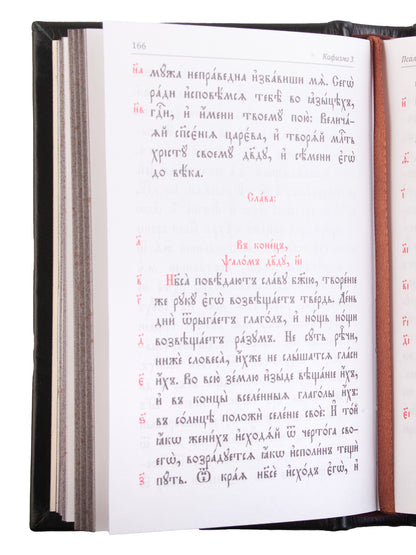 166
Кафисма 3
н҃а мꙋ́жа непра́ведна и҆зба́виши мѧ̀. Сегѡ̀
ра́ди и҆сповѣ́мсѧ тебѣ̀ во ꙗ҆зы́цѣхъ,
н҃в гдⷭ҇и, и҆ и҆́мени твоемꙋ̀ пою̀: Велича́-
ѧй спⷭ҇є́нїѧ царє́ва, и҆ творѧ́й млⷭ҇ть
хрїстꙋ̀ своемꙋ̀ дв҃дꙋ, и҆ сѣ́мени є҆гѡ̀
до вѣ́ка.
Сла́ва:
а҃ Въ коне́цъ,
ѱало́мъ дв҃дꙋ, и҃і
в҃ Нб҃са̀ повѣ́даютъ сла́вꙋ бж҃їю, творе́нїе
г҃ же рꙋкꙋ̀ є҆гѡ̀ возвѣща́етъ тве́рдь. Де́нь
днѝ ѿрыга́етъ глаго́лъ, и҆ но́щь но́щи
возвѣща́етъ ра́зꙋмъ. Не сꙋ́ть рѣ̑чи,
д҃ нижѐ словеса̀, и҆́хже не слы́шатсѧ гла́си
є҃ и҆́хъ. Во всю̀ зе́млю и҆зы́де вѣща́нїе и҆́хъ,
и҆ въ концы̀ вселе́нныѧ глаго́лы и҆́хъ:
ѕ҃ въ со́лнцѣ положѝ селе́нїе своѐ: И҆ то́й
ꙗ҆́кѡ жени́хъ и҆сходѧ́й ѿ черто́га сво-
егѡ̀, возра́дꙋетсѧ ꙗ҆́кѡ и҆споли́нъ тещѝ
з҃ пꙋ́ть. Ѿ кра́ѧ нб҃сѐ и҆схо́дъ є҆гѡ̀, и҆